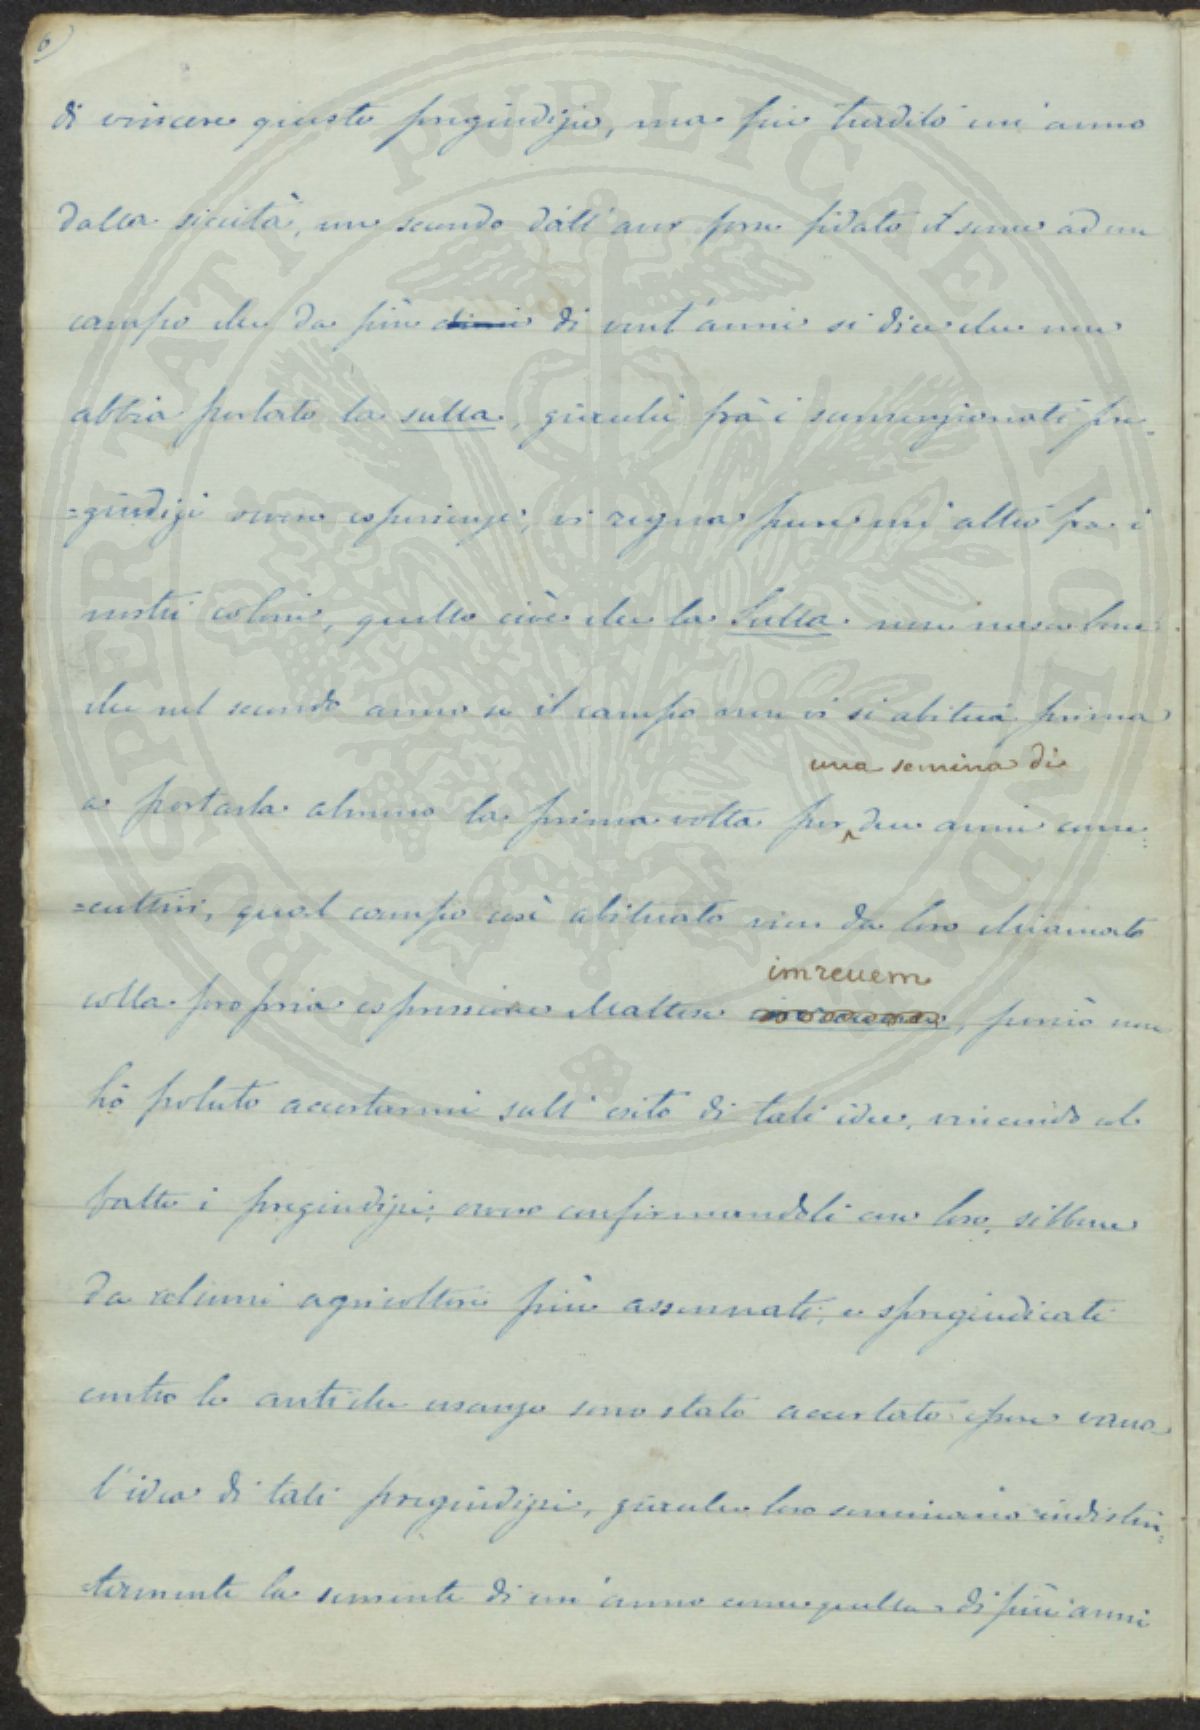 6)
di vincere questo pregiudizio, ma fui tradito un' anno
dalla siccità, un secondo dall' aver fidato il seme ad un
campo che da più di vent'anni si dice che non
abbia portato la sulla, giacchè frà i summenzionati pre-
=giudizi ovvero esperienze, vi regna pure un' altro fra i
nostri coloni, quello cioè che la Sulla non nasce bene
che nel secondo anno se il campo non vi si abitua prima
una semina di
a portarla almeno la prima volta per due anni conse-
=cuttivi, qual campo così abituato vien da loro chiamato
imreuem
colla propria espressione Maltese , perciò non
hò potuto accertarmi sull' esito di tali idee, vincendo col
fatto i pregiudizi, ovvero confirmandoli con loro, sibbene
da talumi agricoltori più assennati, e spregiudicati
contro le antiche usanze sono stato accertato essere vana
l'idea di tali pregiudizi, giacchè loro seminano indistin-
=tamente la semente di un' anno come quella di più anni
PROSPERITATI PUBLICAE AUGENDAE